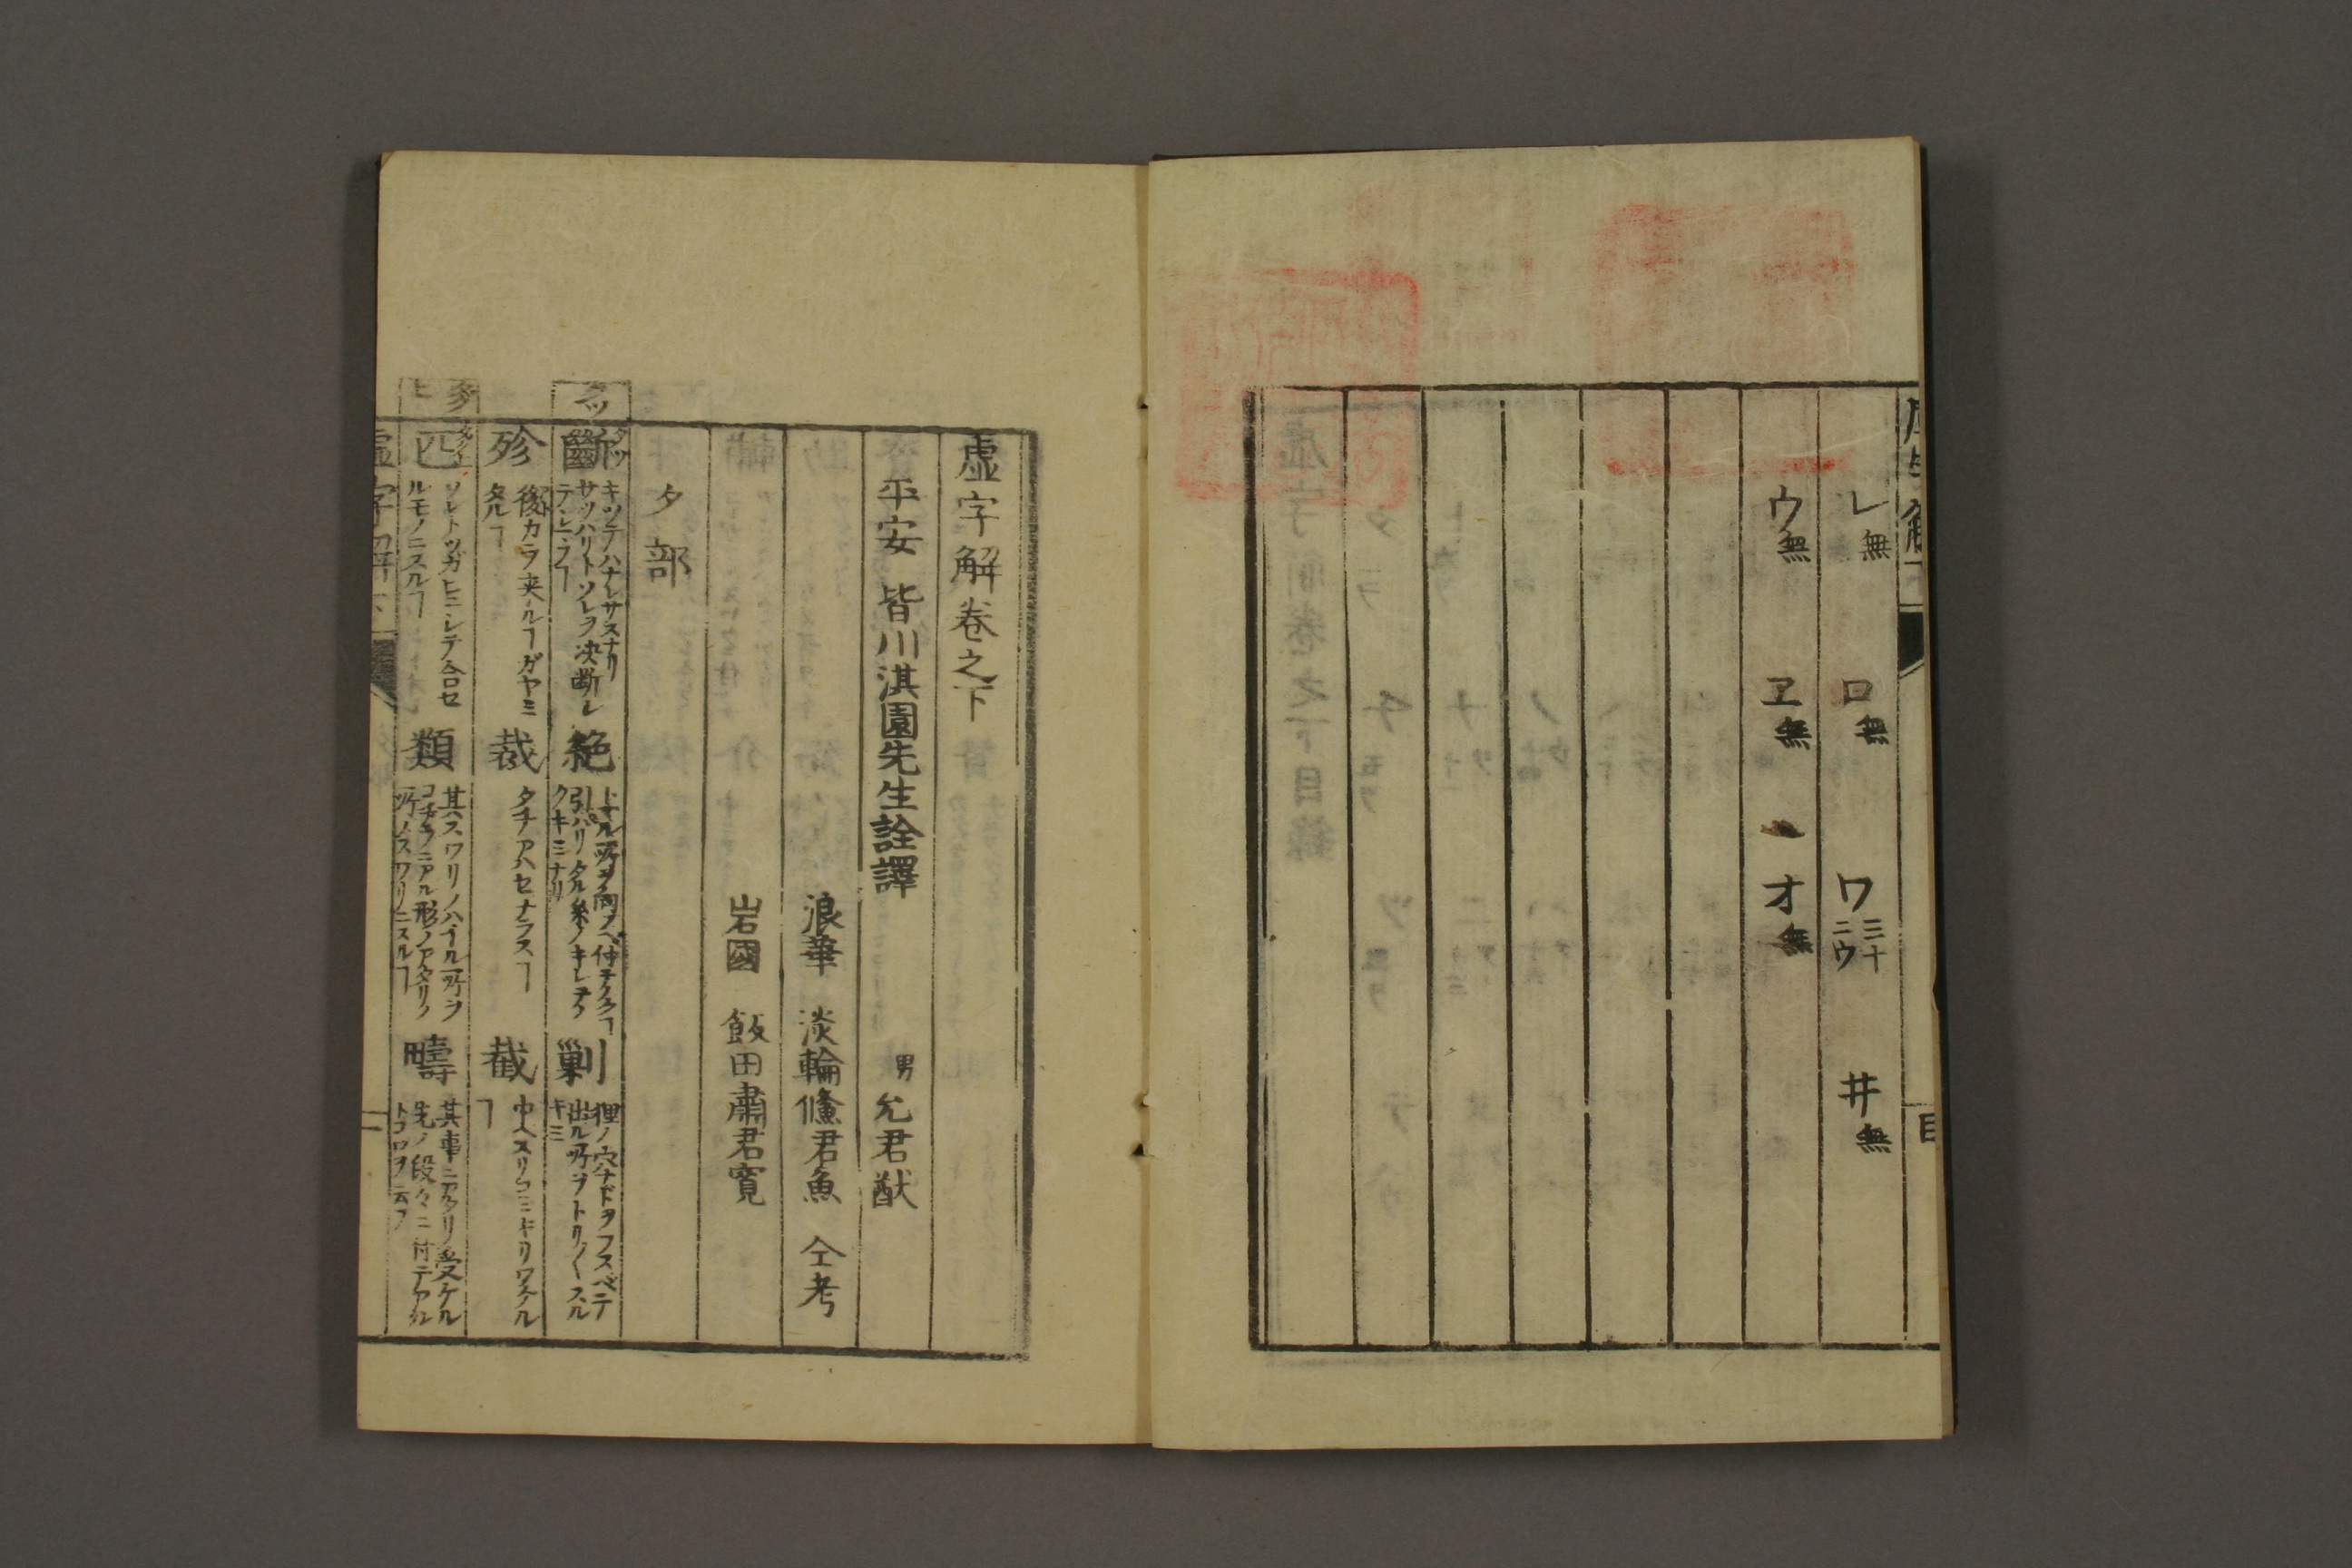 レ無 ロ無 ワ三十二ウ 井無
ウ無 ヱ無 オ無
目
虚字解卷之下
平安 皆川淇園先生詮譯
男 允君猷
浪華 淡輪 君魚 仝考
岩國 飯田肅君寛
タ部
タツ
斷 タツ
キツテハナレサスナリ
サツハリトソレヲ決斷シ
絶
引ハリタル糸ノキレテ
剿
狸ノ穴ナドヲフスベテ
出ル所ヲトリ〱スル
殄
後カラ夾ルヿガヤミ
タルヿ
裁
タチアハセナラスヿ
截
中ヘスリコミキリワケル
ヿ
匹
ソレトツガヒニシテ合セ
ルモノニスルヿ
類
其スワリノハイル所ヲ
コチラニアル形ノアタリノ
所ノスワリニスルヿ
疇
其事ニアタリ受ケル
先ノ段々ニ付テアル
トコロヲ云フ
虚字解下
一